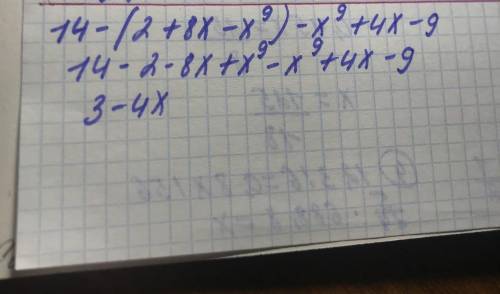 14-(2+8x-x⁹)-x⁹+4x-9
14-2-8x+x⁹-x⁹+4x-9
3-4x